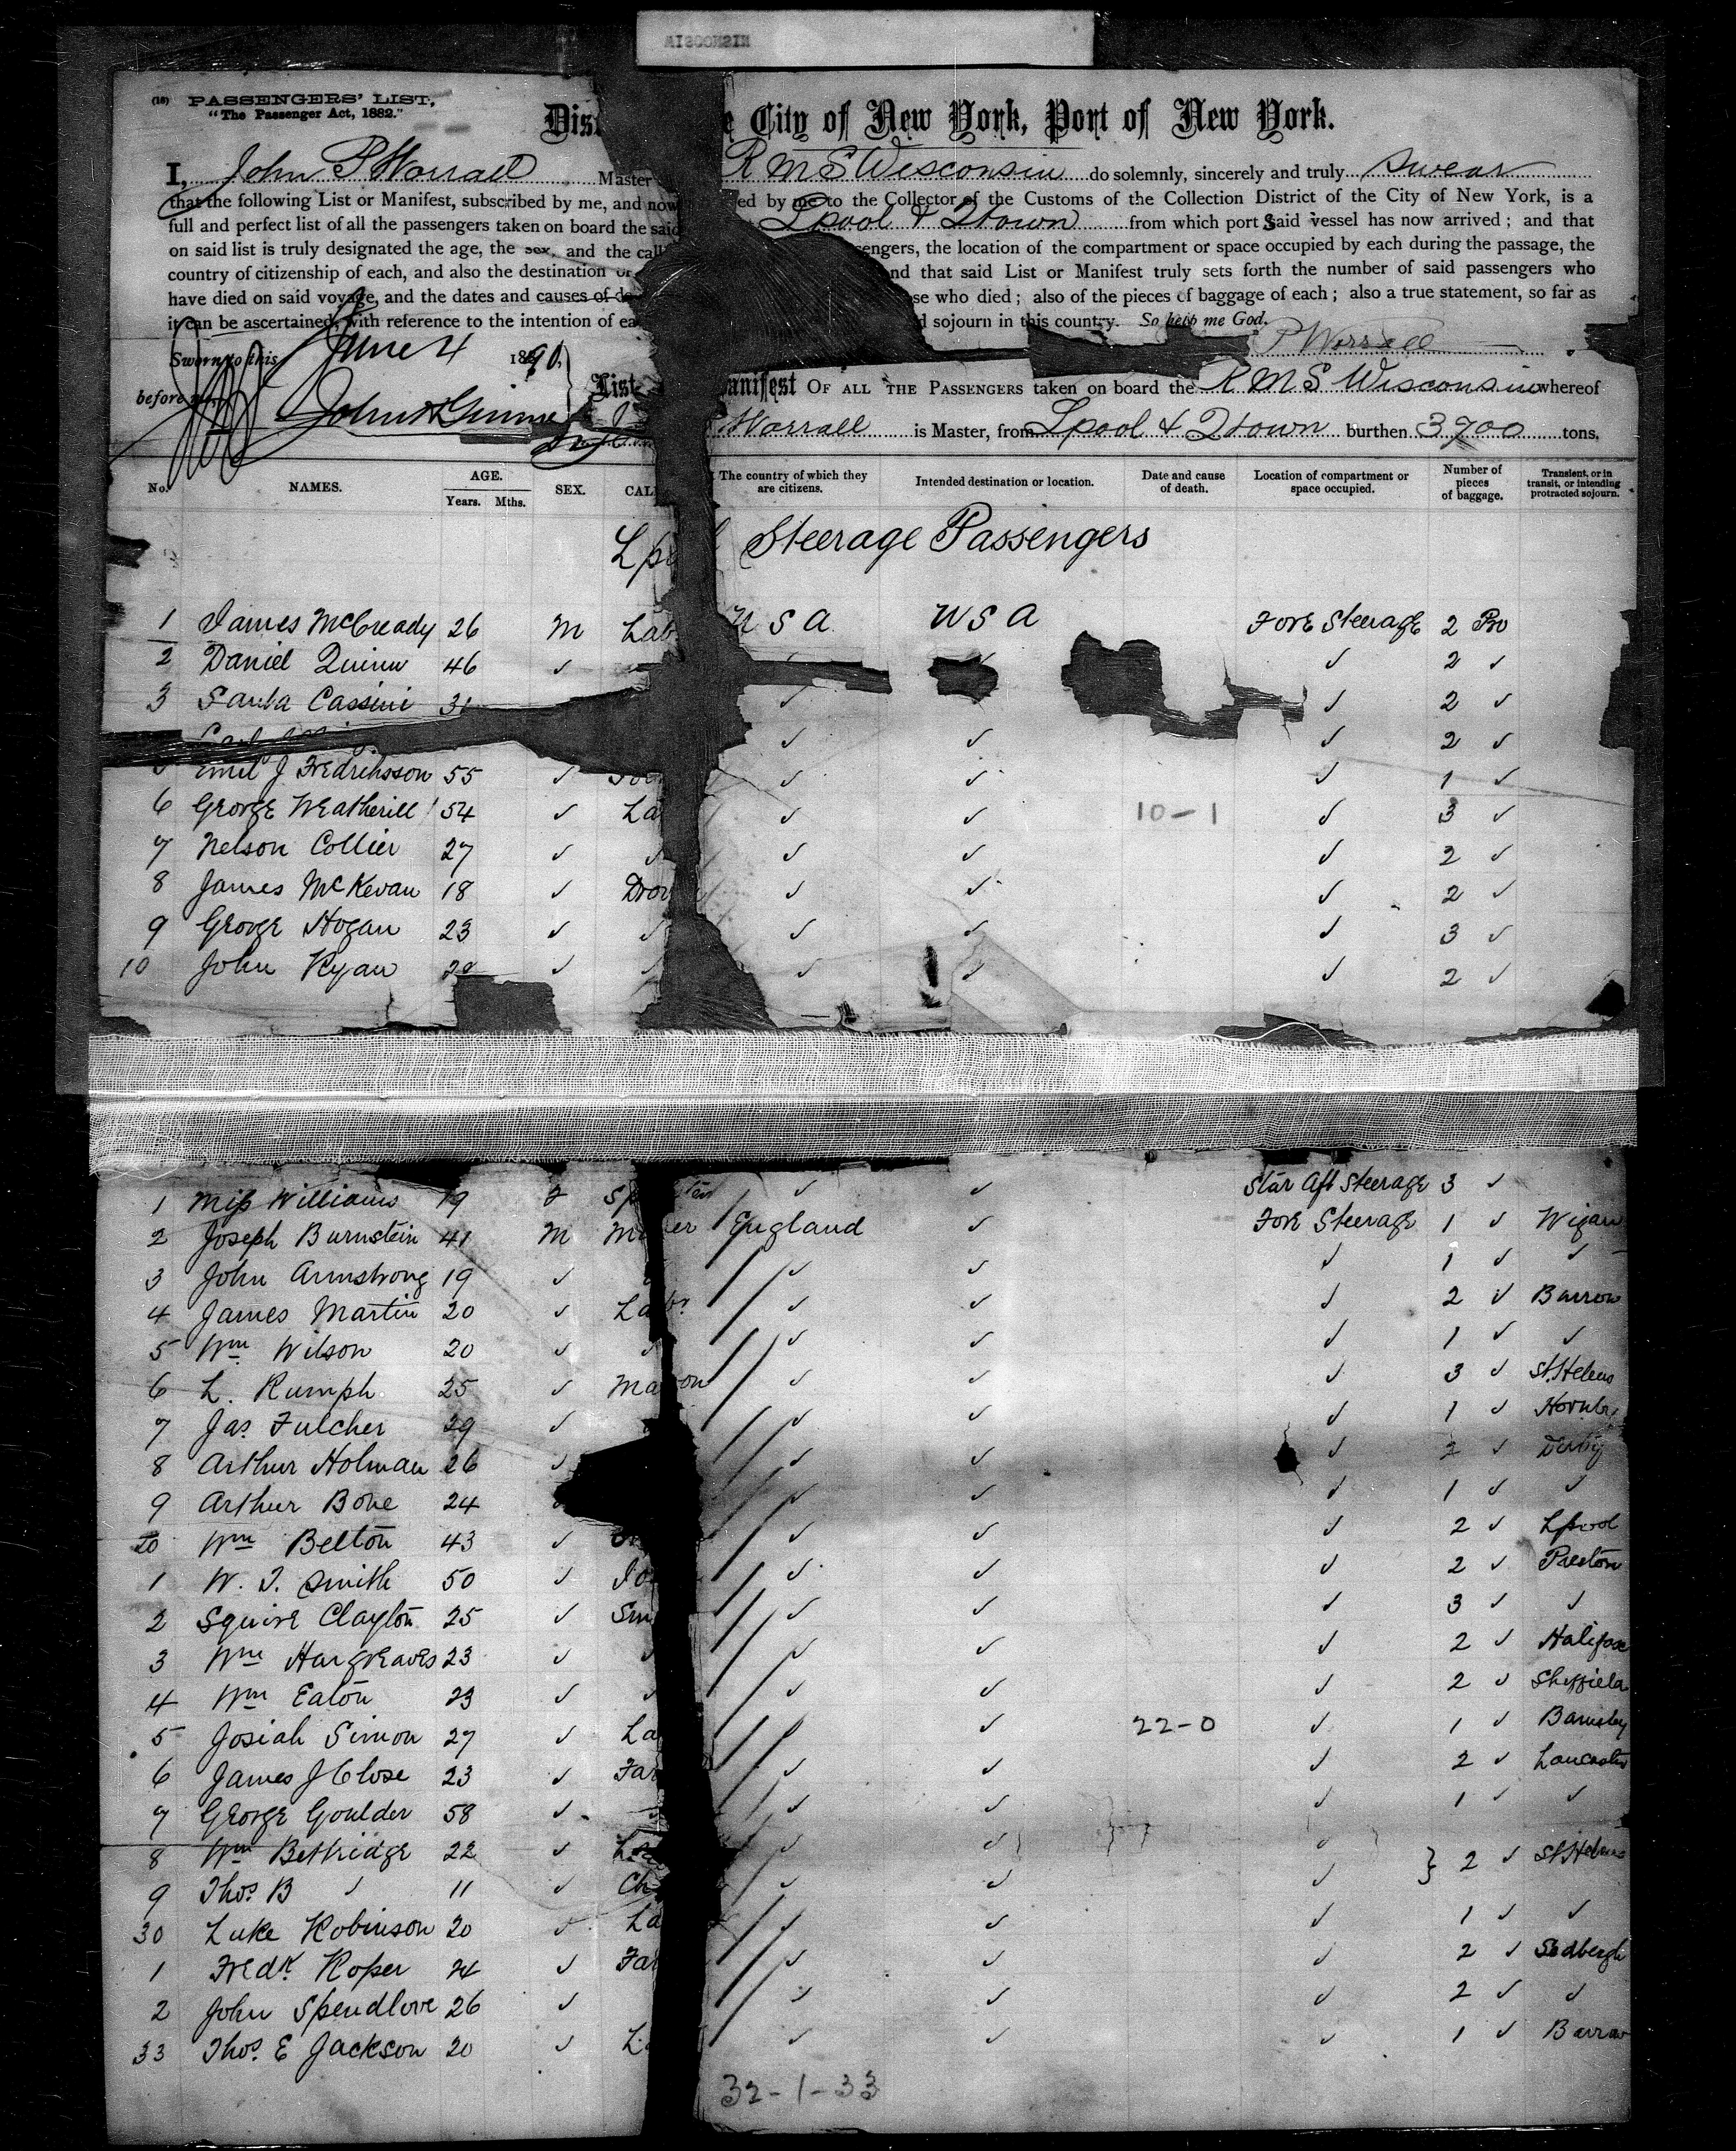 WISCONSIN
(18) PASSENGERS' LIST,
"The Passenger Act, 1882."
City of New York, Port of New York.
I, John P Worrall Master R M S Wisconsin do solemnly, sincerely and truly swear
that the following List or Manifest, subscribed by me, and now by me to the Collector of the Customs of the Collection District of the City of New York, is a
full and perfect list of all the passengers taken on board the said Lpool & Qtown from which port said vessel has now arrived; and that
on said list is truly designated the age, the sex, and the the location of the compartment or space occupied by each during the passage, the
country of citizenship of each, and also the destination or that said List or Manifest truly sets forth the number of said passengers who
have died on said voyage, and the dates and causes of who died; also of the pieces of baggage of each; also a true statement, so far as
it can be ascertained, with reference to the intention of sojourn in this country. So help me God.
P Worrall
Sworn to this June 4 1890
before
List Manifest OF ALL THE PASSENGERS taken on board the R M S Wisconsin whereof
Worrall is Master, from Lpool & Qtown burthen 3700 tons,
No. NAMES. AGE. Years. Mths. SEX. The country of which they are citizens. Intended destination or location. Date and cause of death. Location of compartment or space occupied. Number of pieces of baggage. Transient, or in transit, or intending protracted sojourn.
Steerage Passengers
1 James McCready 26 M Lab U S A U S A Fore Steerage 2 Pro
2 Daniel Quinn 46 ✓ ✓ 2 ✓
3 Santa Cassini ✓ ✓ 2 ✓
✓ ✓ ✓ 2 ✓
Emil J Fredrichsson 55 ✓ ✓ ✓ ✓ 1 ✓
6 George Weatherill 54 ✓ La ✓ ✓ 10-1 ✓ 3 ✓
7 Nelson Collier 27 ✓ ✓ ✓ ✓ ✓ 2 ✓
8 James McKevan 18 ✓ ✓ ✓ ✓ 2 ✓
9 George Hogan 23 ✓ ✓ ✓ ✓ ✓ 3 ✓
10 John Ryan ✓ ✓ ✓ ✓ ✓ 2 ✓
1 Miss Williams 19 F ✓ ✓ Star Aft Steerage 3 ✓
2 Joseph Burnstein 41 M England ✓ Fore Steerage 1 ✓ Wigan
3 John Armstrong 19 ✓ ✓ ✓ ✓ 1 ✓ ✓
4 James Martin 20 ✓ ✓ ✓ ✓ 2 ✓ Barrow
5 Wm Wilson 20 ✓ ✓ ✓ ✓ ✓ 1 ✓ ✓
6 L. Rumph 25 ✓ Mason ✓ ✓ ✓ 3 ✓ St. Helens
7 Jas. Fulcher 29 ✓ ✓ ✓ ✓ 1 ✓
8 Arthur Holman 26 ✓ ✓ ✓ ✓ 2 ✓ Derby
9 Arthur Bone 24 ✓ ✓ ✓ 1 ✓ ✓
20 Wm Belton 43 ✓ ✓ ✓ ✓ 2 ✓ Lpool
1 W. T. Smith 50 ✓ ✓ ✓ ✓ 2 ✓ Preston
2 Squire Clayton 25 ✓ ✓ ✓ ✓ 3 ✓ ✓
3 Wm Hargreaves 23 ✓ ✓ ✓ ✓ ✓ 2 ✓ Halifax
4 Wm Eaton 23 ✓ ✓ ✓ ✓ ✓ 2 ✓ Sheffield
5 Josiah Simon 27 ✓ La ✓ 22-0 ✓ 1 ✓ Barnsley
6 James J Close 23 ✓ Far ✓ ✓ ✓ 2 ✓ Lancaster
7 George Goulder 58 ✓ ✓ ✓ ✓ 1 ✓ ✓
8 Wm Bettridge 22 ✓ ✓ ✓ ✓ } 2 ✓ St Helens
9 Thos. B ✓ 11 ✓ Ch ✓ ✓ ✓
30 Luke Robinson 20 ✓ La ✓ ✓ ✓ 1 ✓ ✓
1 Fredk. Roper 24 ✓ Far ✓ ✓ ✓ 2 ✓ Sedbergh
2 John Spendlove 26 ✓ ✓ ✓ ✓ 2 ✓ ✓
33 Thos. E Jackson 20 ✓ L ✓ ✓ ✓ 1 ✓ Barrow
32-1-33